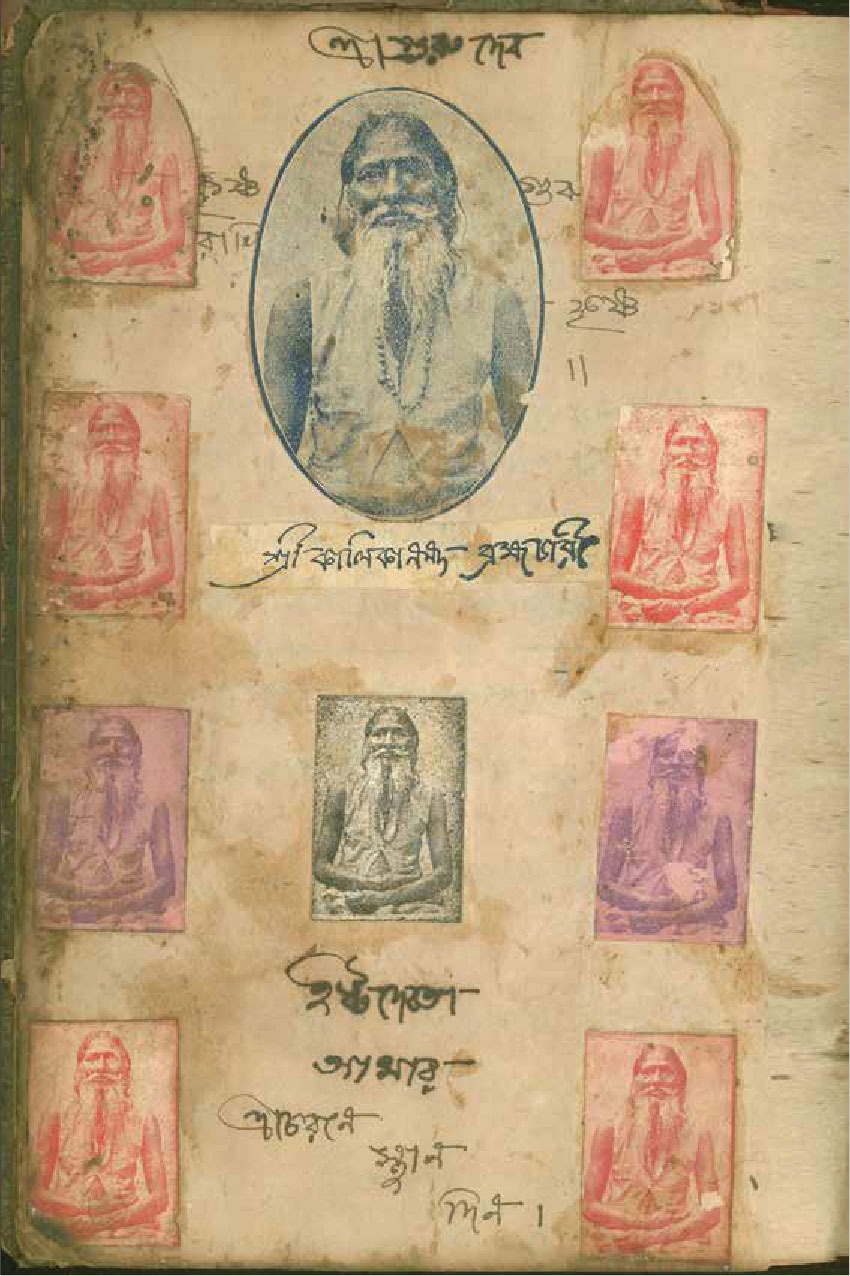 শ্রীগুরুদেব
কৃষ্ণ
গুরু
কৃষ্ণ
॥
শ্রী কালিকানন্দ ব্রহ্মচারী
ইষ্টদেবতা
আমার
শ্রীচরনে
স্থান
দিন।